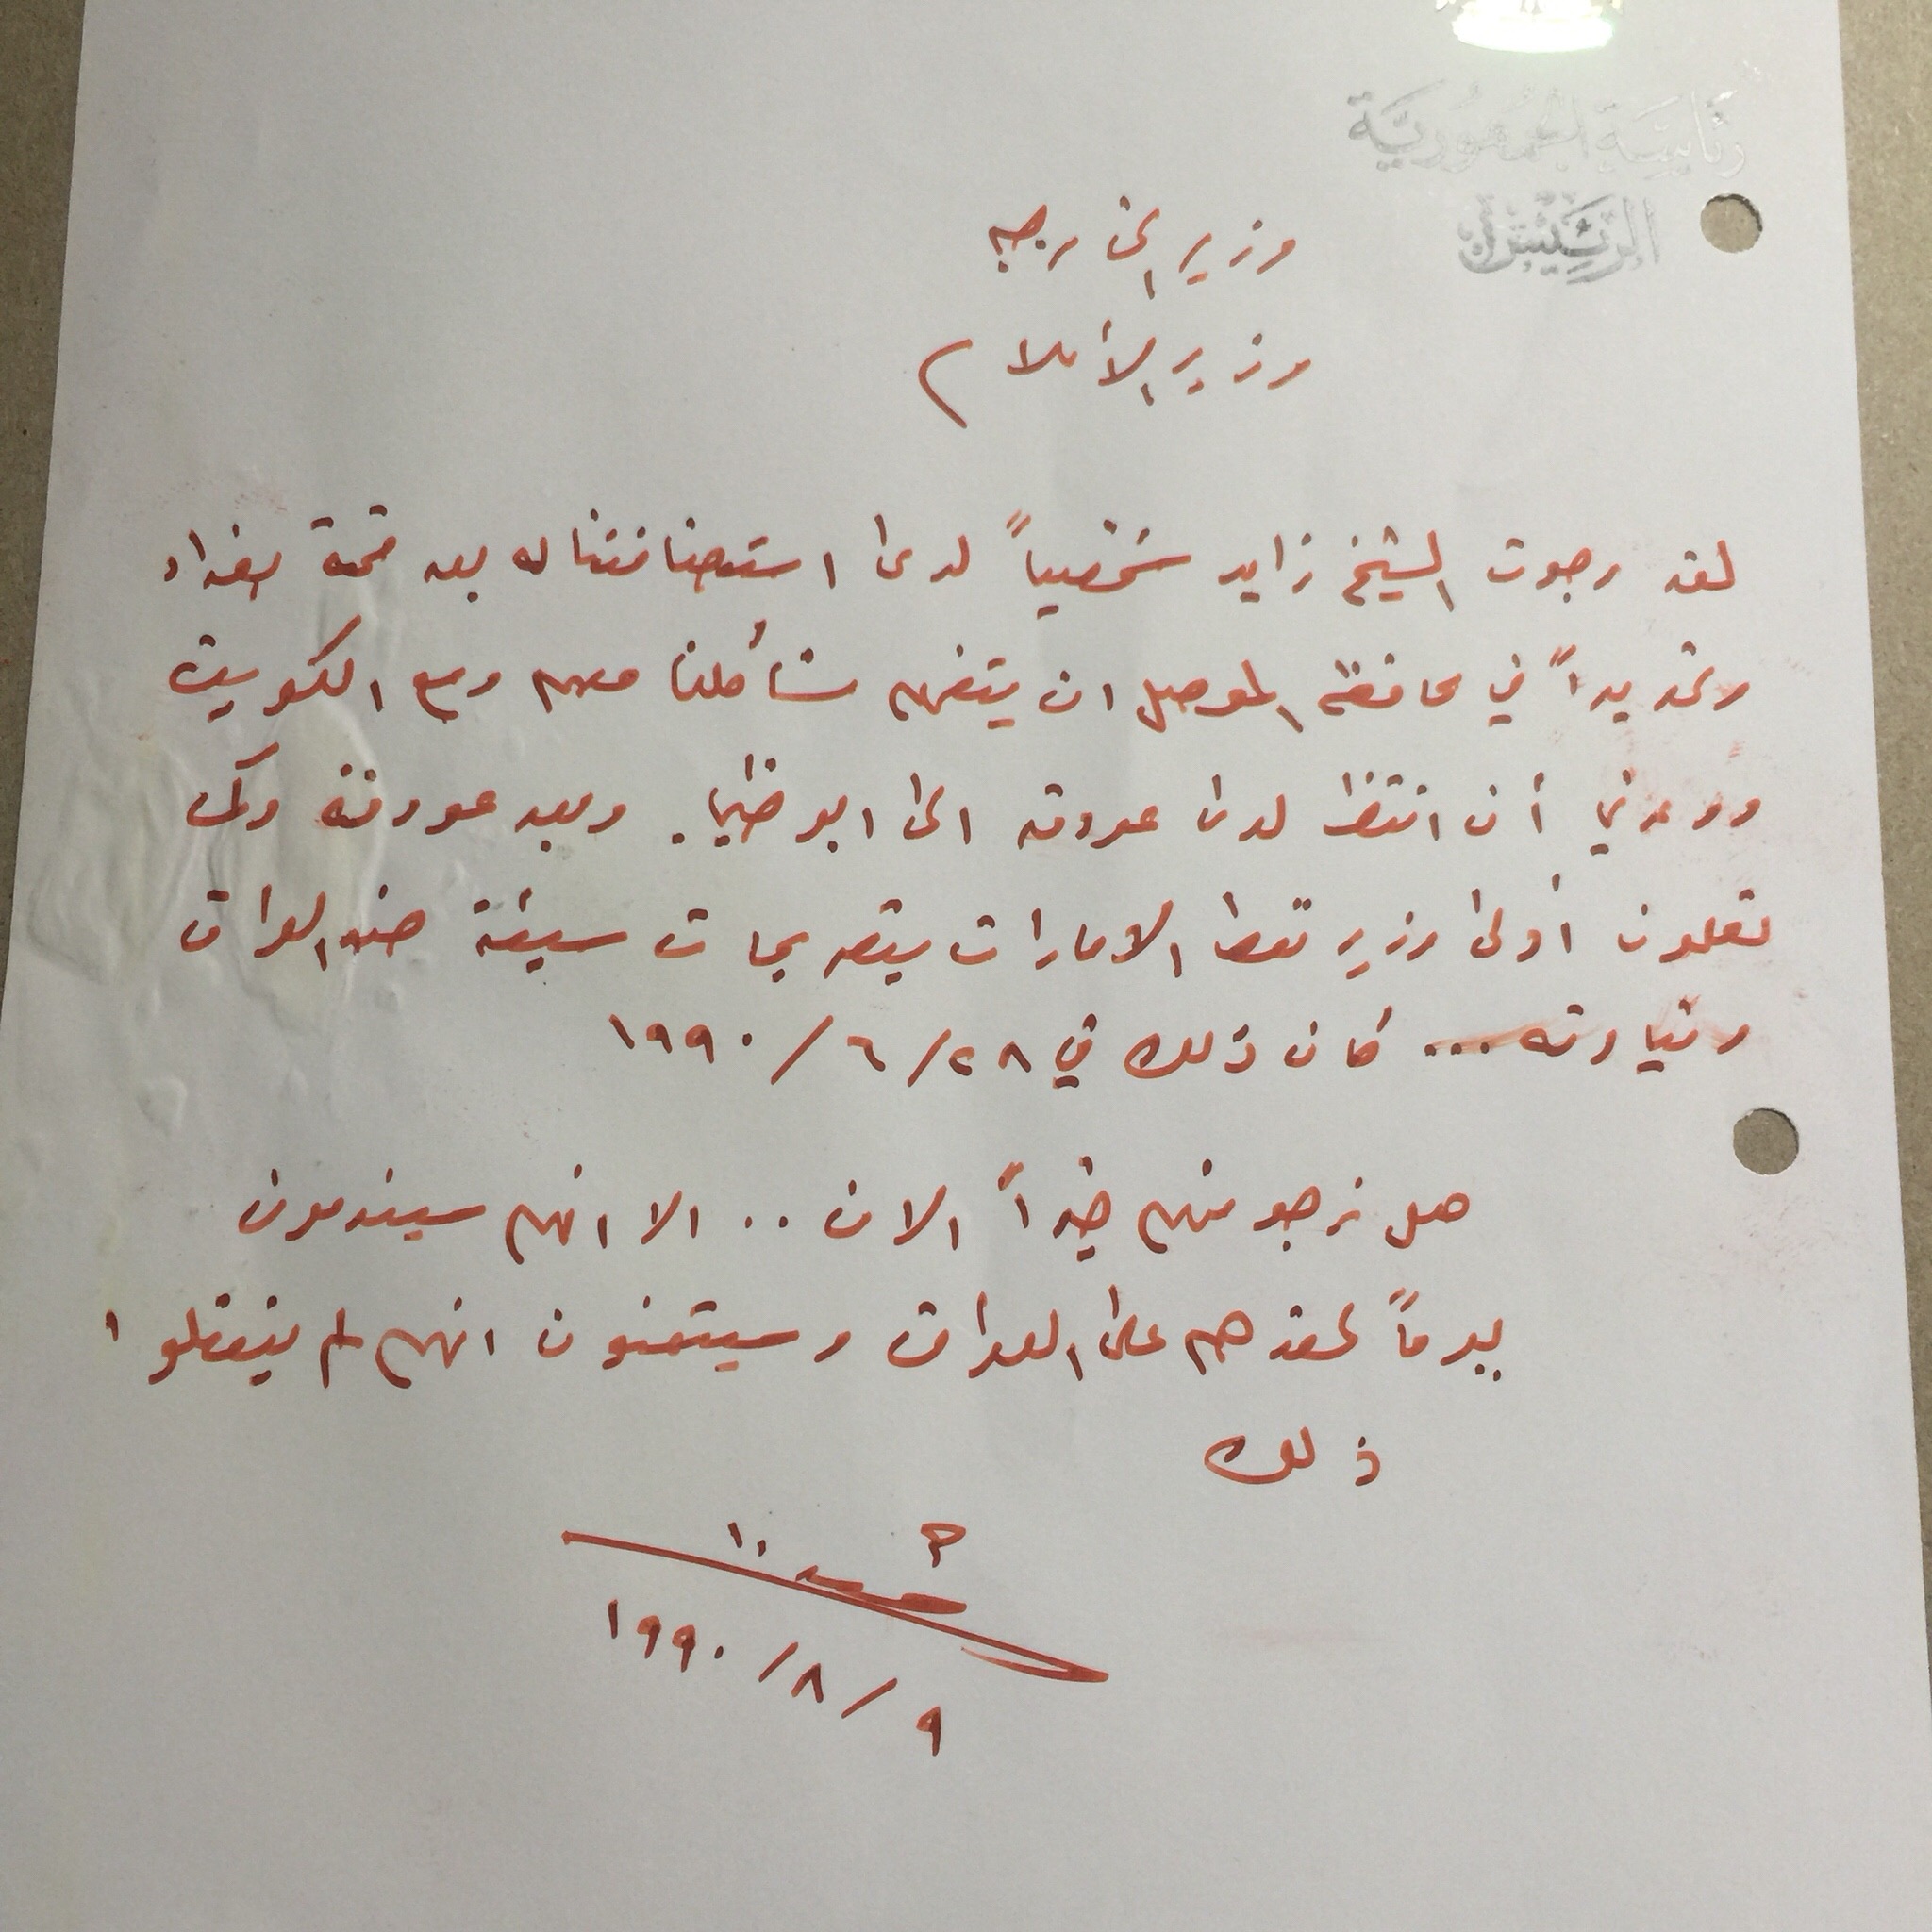 رئاسة الجمهورية
الرئيس
وزير الخارجيه
وزير الأعلام
لقد رجوت الشيخ زايد شخصياً لدى استضافتنا له بعد قمة بغداد
وتحديداً في محافظة الموصل ان يتفهم مشاكلنا معهم ومع الكويت
ووعدني أن انتظر لدى عودته الى ابو ظبي. وبعد عودته وكما
تعلمون أدلى وزير نفط الامارات بتصريحات سيئة ضد العراق
وقيادته... كان ذلك في ٢٨/٦/١٩٩٠
هل نرجو منهم خيراً الان .. الا انهم سيندمون
يوماً لحقدهم على العراق وسيتمنون انهم لم يفعلوا
ذلك
٩/٨/١٩٩٠